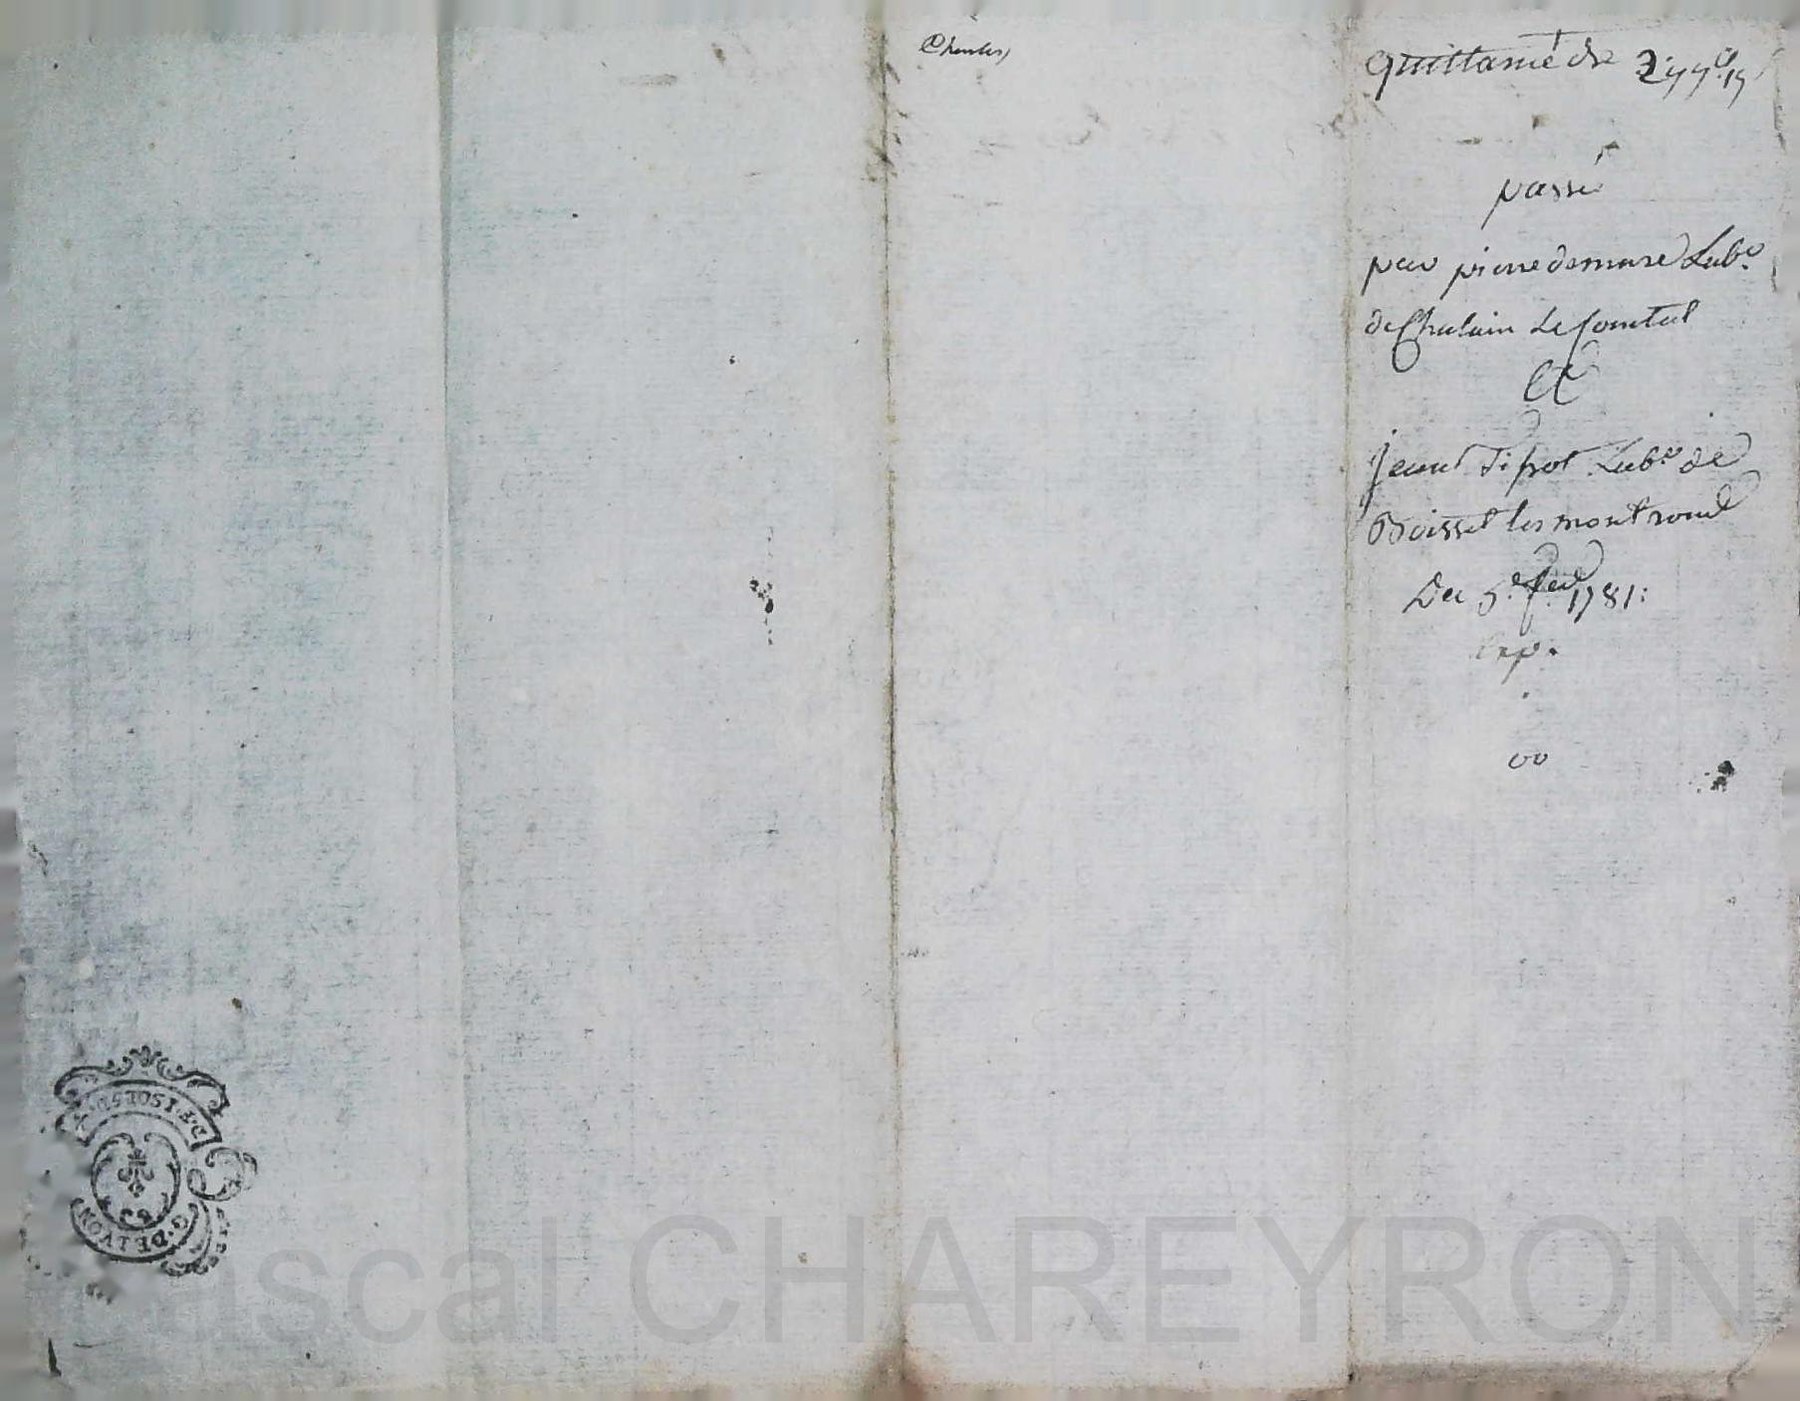 Charles
Quittance de
passé
par pierre demare Lab.r
de Chalain Le Comtal
Et
jean Lab.r de
Boisset les montrond
Du 5.e 1781:
Exp.
G. DE LYON
Pascal CHAREYRON